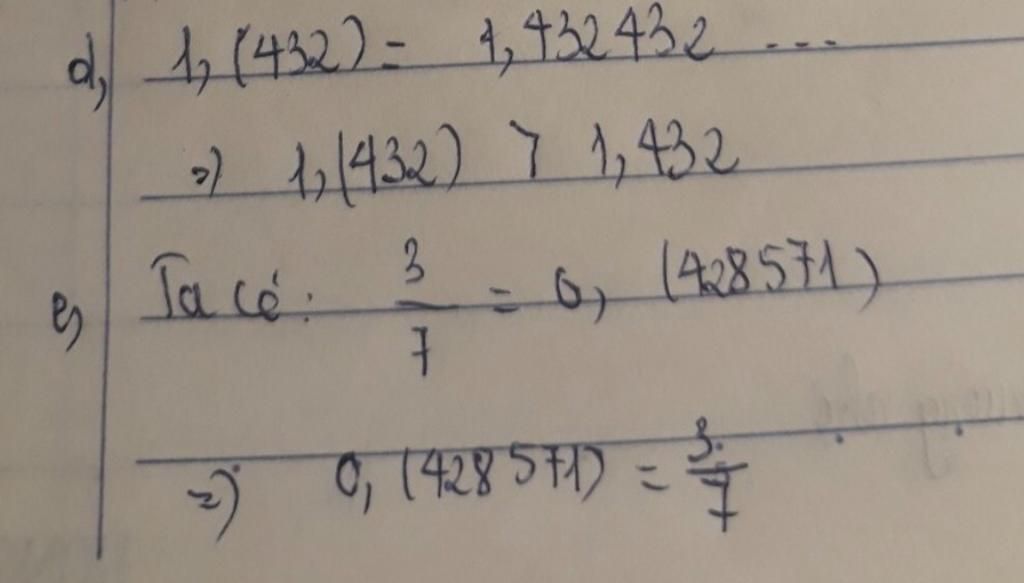 d, 1,(432) = 1,432432 ...
=> 1,(432) > 1,432
e, Ta có: 3/7 = 0,(428571)
=> 0,(428571) = 3/7